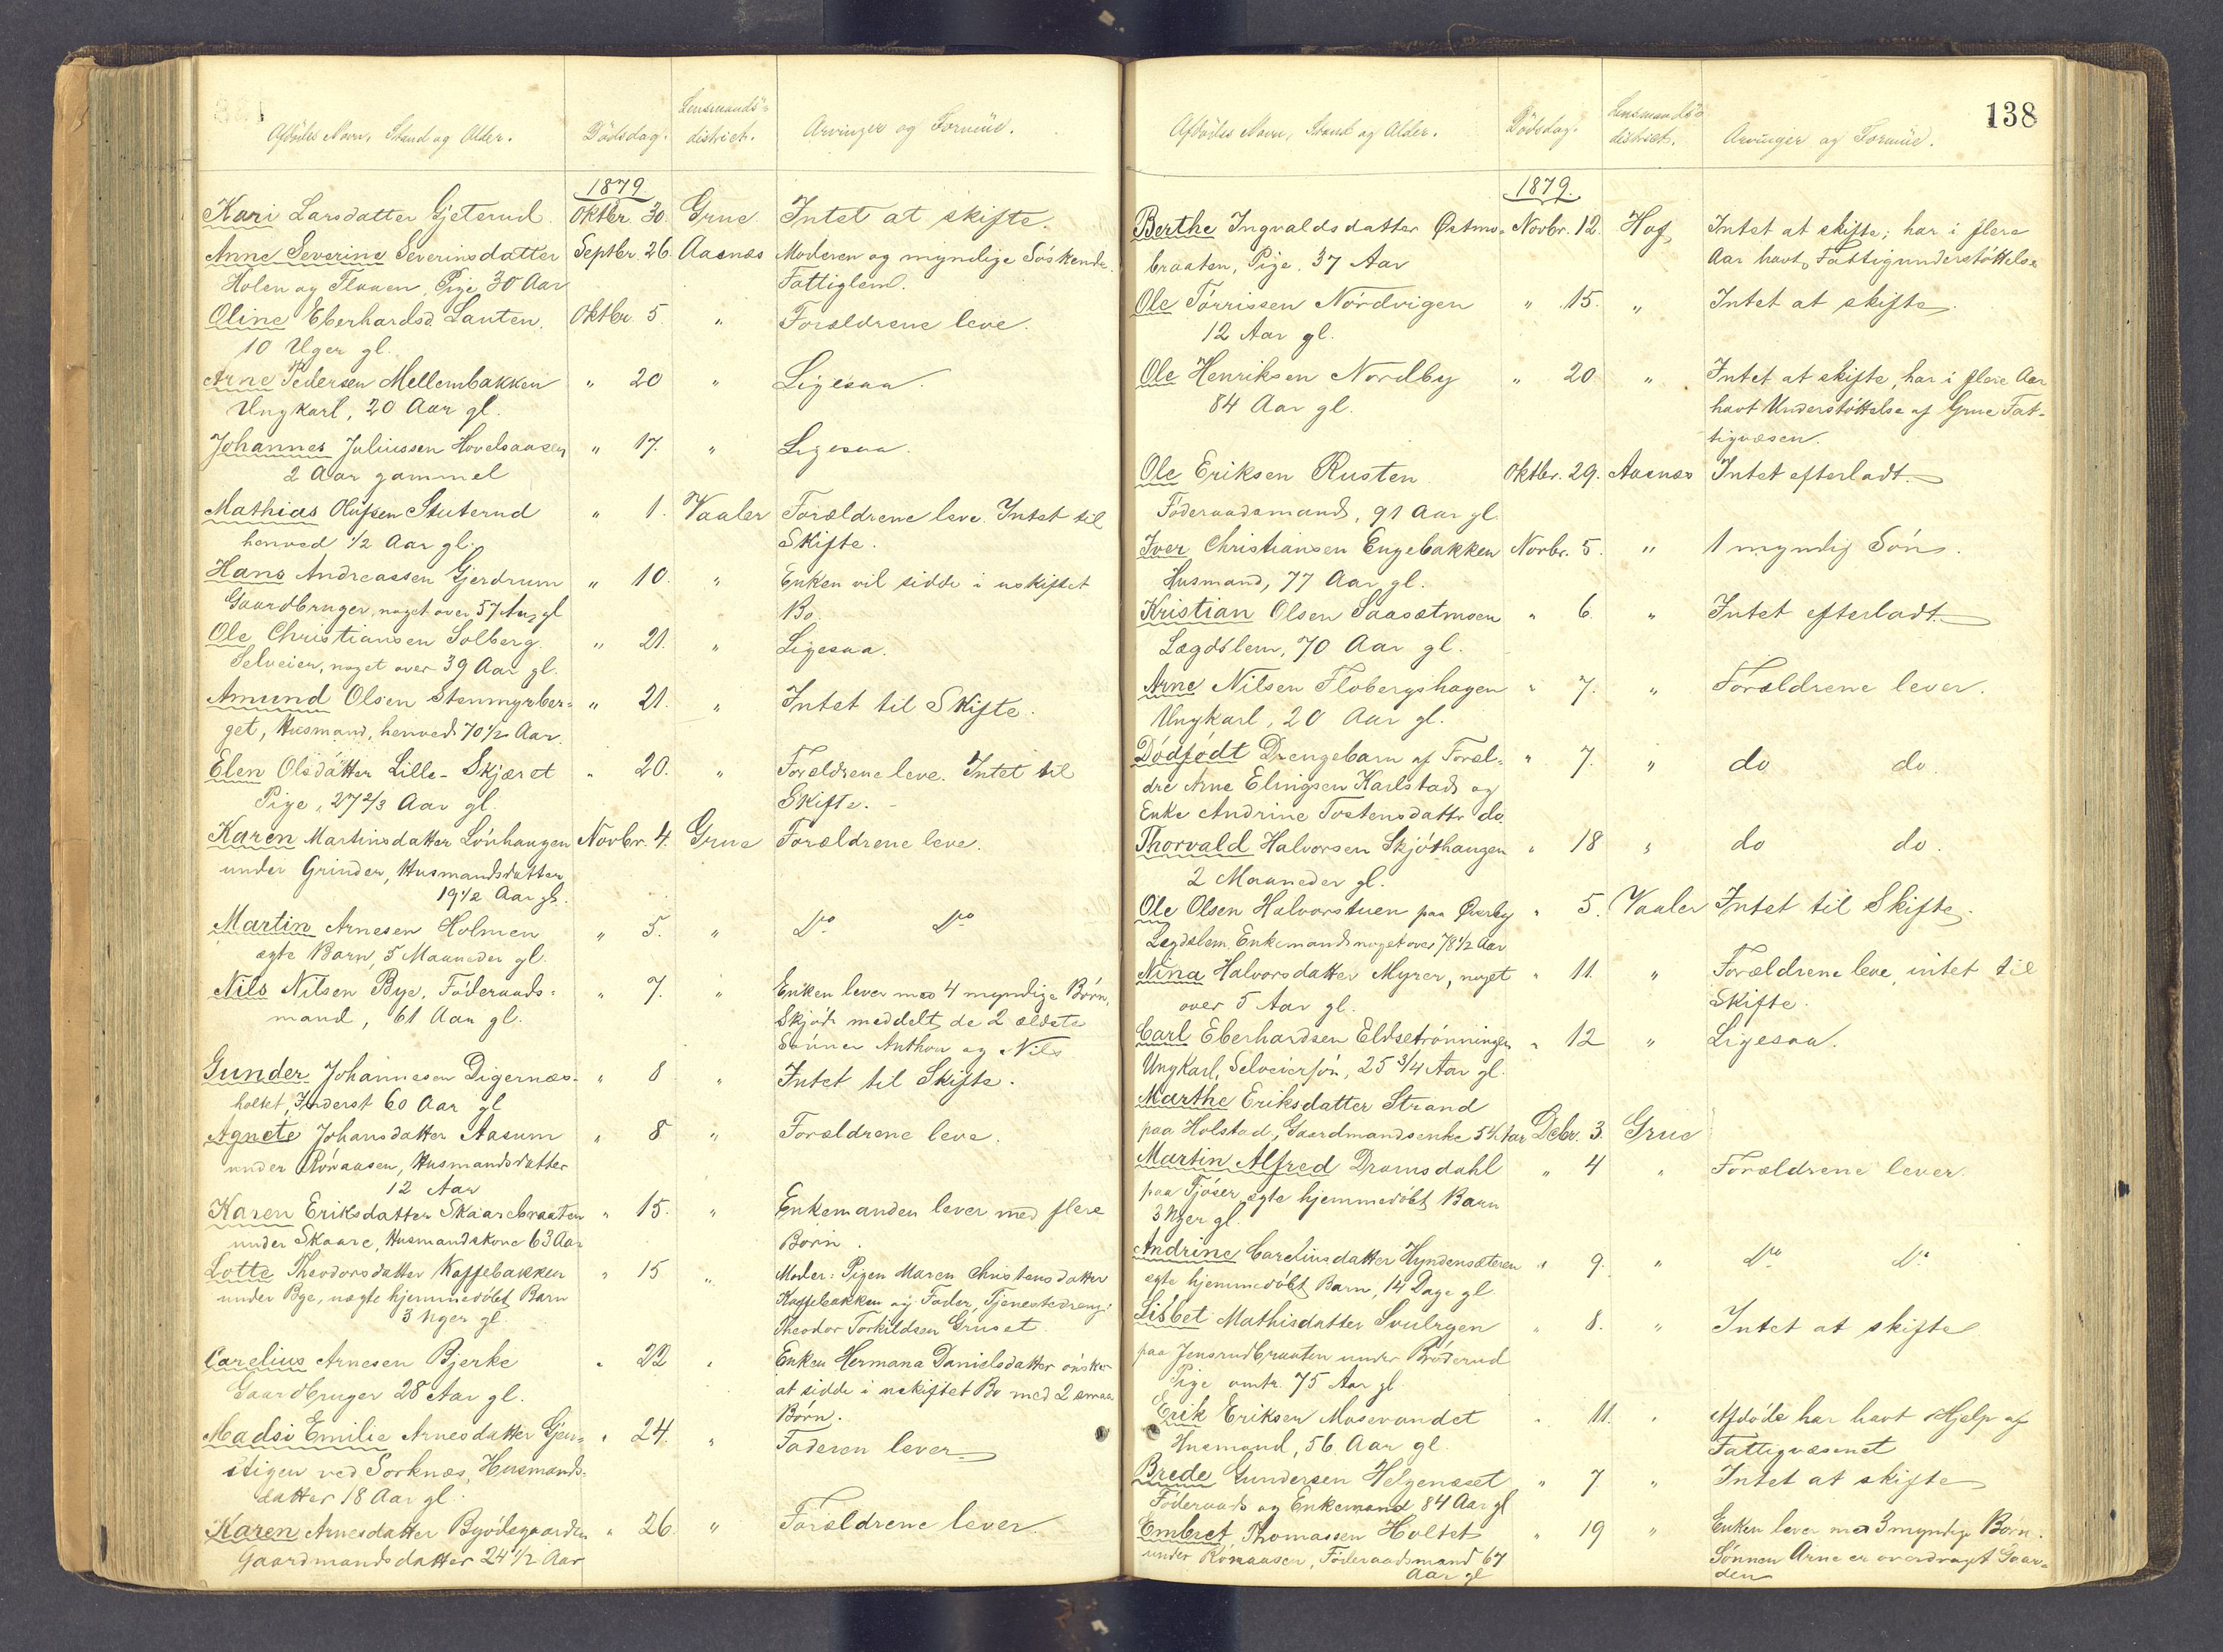 Afdødes Navn, Stand og Alder. Dødsdag. Lensmands=
district. Arvinger og Formue.
1879.
Kari Larsdatter Gjeterud. Oktbr. 30. Grue. Intet at skifte.
Anne Severine Severinsdatter Septbr. 26. Aasnæs Moderen og myndige Søskende.
Holen og Flauen, Pige 30 Aar Fattiglem.
Oline Eberhardsd. Lauten. Oktbr. 5. " Forældrene leve.
10 Uger gl.
Arne Pedersen Mellembakken " 20 " Ligesaa.
Ungkarl, 20 Aar gl.
Johannes Juliussen Hovelsaasen " 17. " Ligesaa.
2 Aar gammel
Mathias Olufsen Stuterud " 1. Vaaler Forældrene leve. Intet til
henved 1/2 Aar gl. Skifte.
Hans Andreassen Gjerdrum " 10. " Enken vil sidde i uskiftet
Gaardbruger, noget over 57 Aar gl Bo.
Ole Christiansen Solberg " 21. " Ligesaa.
Selveier, noget over 39 Aar gl.
Amund Olsen Stenmyrber= " 21. " Intet til Skifte.
get, Husmand, henved 70 1/2 Aar.
Elen Olsdatter Lille-Skjæret " 20. " Forældrene leve. Intet til
Pige, 27 2/3 Aar gl. Skifte. -
Karen Martinsdatter Lønhaugen Novbr. 4. Grue Forældrene leve.
under Grinder, Husmandsdatter
19 1/2 Aar gl.
Martin Arnesen Holmen " 5. " Do Do
ægte Barn, 5 Maaneder gl.
Nils Nilsen Bye, Føderaads= " 7. " Enken lever med 4 myndige Børn,
mand, 61 Aar gl. Skjøde meddelt de 2 ældste
Sønner Anthon og Nils
Gunder Johannesen Digernæs= " 8 " Intet til Skifte.
holtet, Inderst 60 Aar gl
Agnete Johansdatter Aasum " 8 " Forældrene leve.
under Rønaasen, Husmandsdatter
12 Aar
Karen Eriksdatter Skaarebraaten " 15. " Enkemanden lever med flere
under Skaare, Husmandskone 63 Aar Børn.
Lotte Theodorsdatter Kaffebakken " 15 " Moder: Pigen Maren Christensdatter
under Bye, uægte hjemmedøbt Barn Kaffebakken og Fader, Tjenestedreng
3 Uger gl. Theodor Torkildsen Gruset.
Carelius Arnesen Bjerke " 22 " Enken Hermana Danielsdatter ønsker
Gaardbruger 28 Aar gl. at sidde i uskiftet Bo med 2 smaa
Børn.
Madsi Emilie Arnesdatter Gjer= " 24. " Faderen lever
stigen ved Sorknæs, Husmands=
datter 18 Aar gl.
Karen Arnesdatter Byødegaarden " 26. " Forældrene lever.
Gaardmandsdatter 24 1/2 Aar
138
Afdødes Navn, Stand og Alder. Dødsdag. Lensmands=
district. Arvinger og Formue.
1879.
Berthe Ingvaldsdatter Østmo= Novbr. 12. Hof, Intet at skifte; har i flere
braaten, Pige. 37 Aar Aar havt Fattigunderstøttelse
Ole Tørrissen Nordvigen " 15. " Intet at skifte.
12 Aar gl.
Ole Henriksen Nordby " 20 " Intet at skifte, har i flere Aar
84 Aar gl. havt Understøttelse af Grue Fat=
tigvæsen.
Ole Eriksen Rusten Oktbr. 29. Aasnæs Intet efterladt.
Føderaadsmand, 91 Aar gl.
Iver Christiansen Engebakken Novbr. 5. " 1 myndig Søn.
Husmand, 77 Aar gl.
Kristian Olsen Saasætmoen " 6 " Intet efterladt.
Lægdslem, 70 Aar gl.
Arne Nilsen Flobergshagen " 7. " Forældrene lever.
Ungkarl, 20 Aar gl.
Dødfødt Drengebarn af Foræl= " 7. " do do.
dre Arne Elingsen Karlstad og
Enke Andrine Tostensdatter do.
Thorvald Halvorsen Skjøthaugen " 18 " do do.
2 Maaneder gl.
Ole Olsen Halvorstuen paa Øverby " 5. Vaaler Intet til Skifte.
Lægdslem, Enkemand noget over 78 1/2 Aar
Nina Halvorsdatter Myrer, noget " 11. " Forældrene leve, intet til
over 5 Aar gl. Skifte.
Carl Eberhardsen Eldsetrønningen " 12 " Ligesaa.
Ungkarl, Selveiersøn, 25 3/4 Aar gl.
Marthe Eriksdatter Strand
paa Holstad, Gaardmandsenke 54 Aar Debr. 3. Grue
Martin Alfred Dramsdahl " 4 " Forældrene lever
paa Tjøser, ægte hjemmedøbt Barn
3 Uger gl.
Andrine Careliusdatter Hyndensæteren " 9. " Do Do
ægte hjemmedøbt Barn, 14 Dage gl
Lisbet Mathisdatter Svulryen " 8. " Intet at skifte
paa Jensrudbraaten under Brøderud
Pige omtr. 75 Aar gl.
Erik Eriksen Mosevandet " 11. " Afdøde har havt Hjelp af
Husmand, 56 Aar gl. Fattigvæsenet
Brede Gundersen Helgenæset " 7. " Intet at skifte
Føderaads og Enkemand 84 Aar gl
Embret Thomassen Holtet " 19 " Enken lever med 3 myndige Børn.
under Rønaasen, Føderaadsmand 67 Sønnen Arne er overdraget Gaar=
Aar gl den